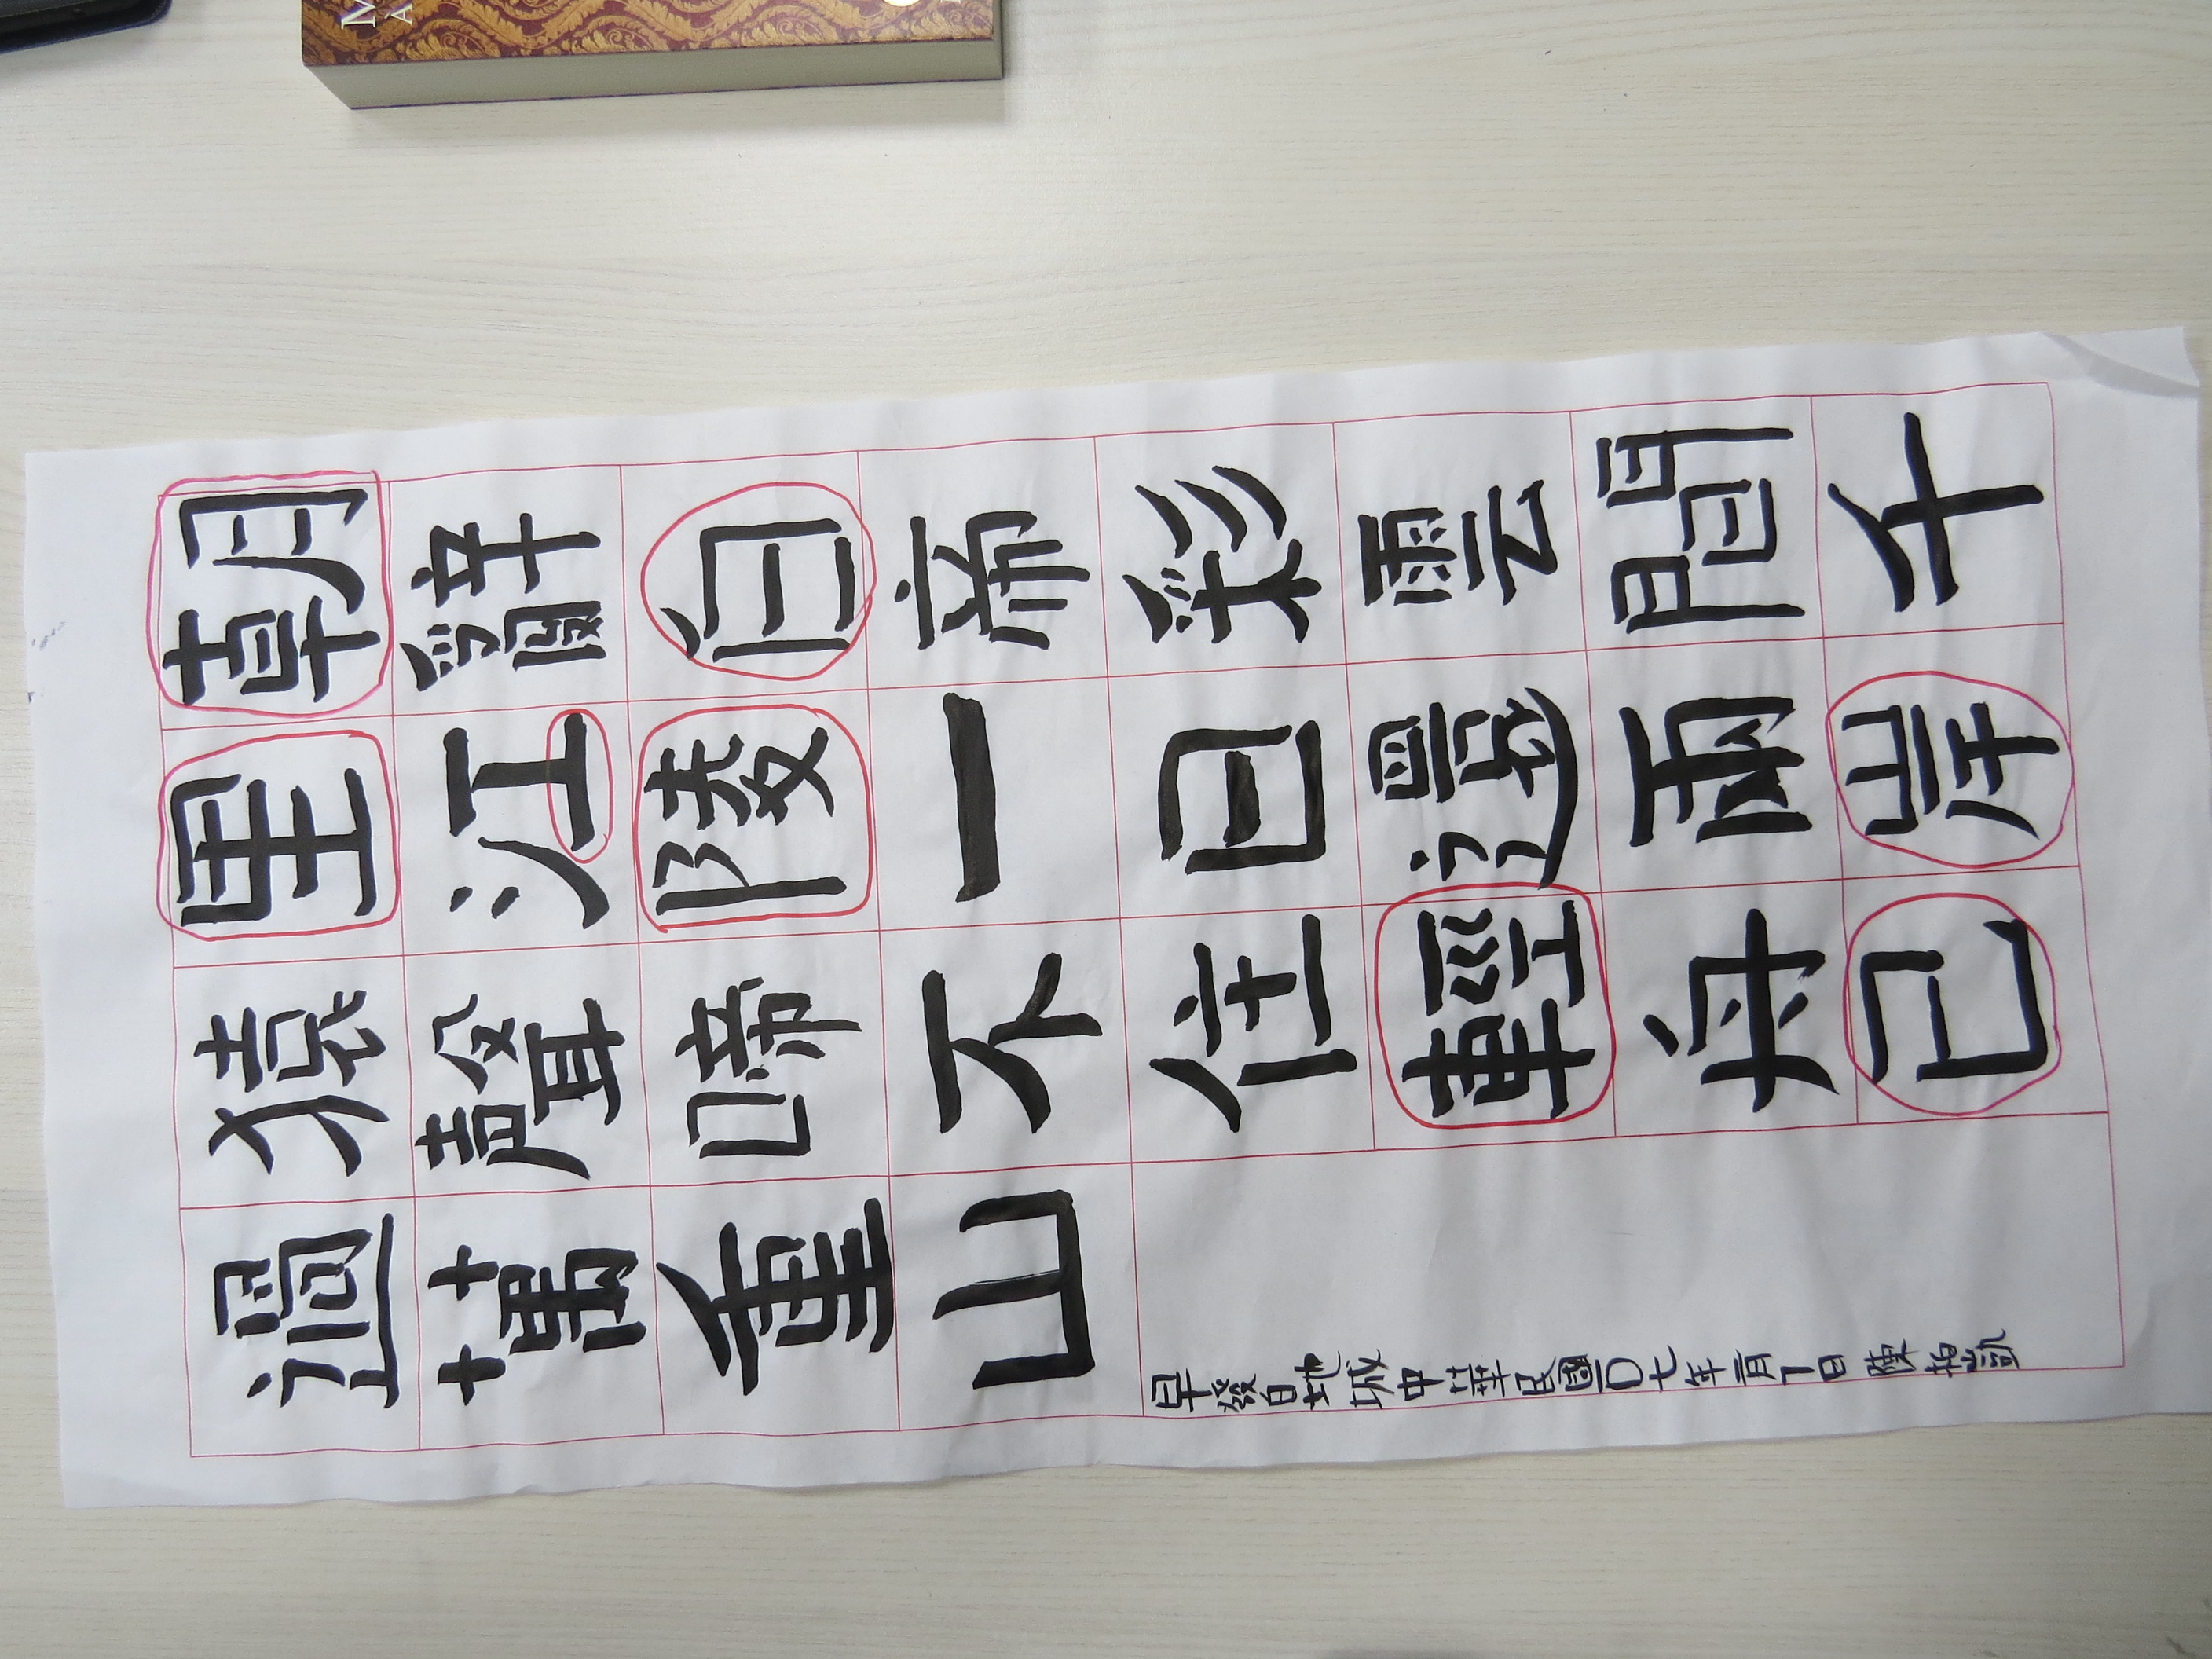 朝辭白帝彩雲間千
里江陵一日還兩岸
猿聲啼不住輕舟已
過萬重山
早發白地城中華民國一0七年二月日 陳凱